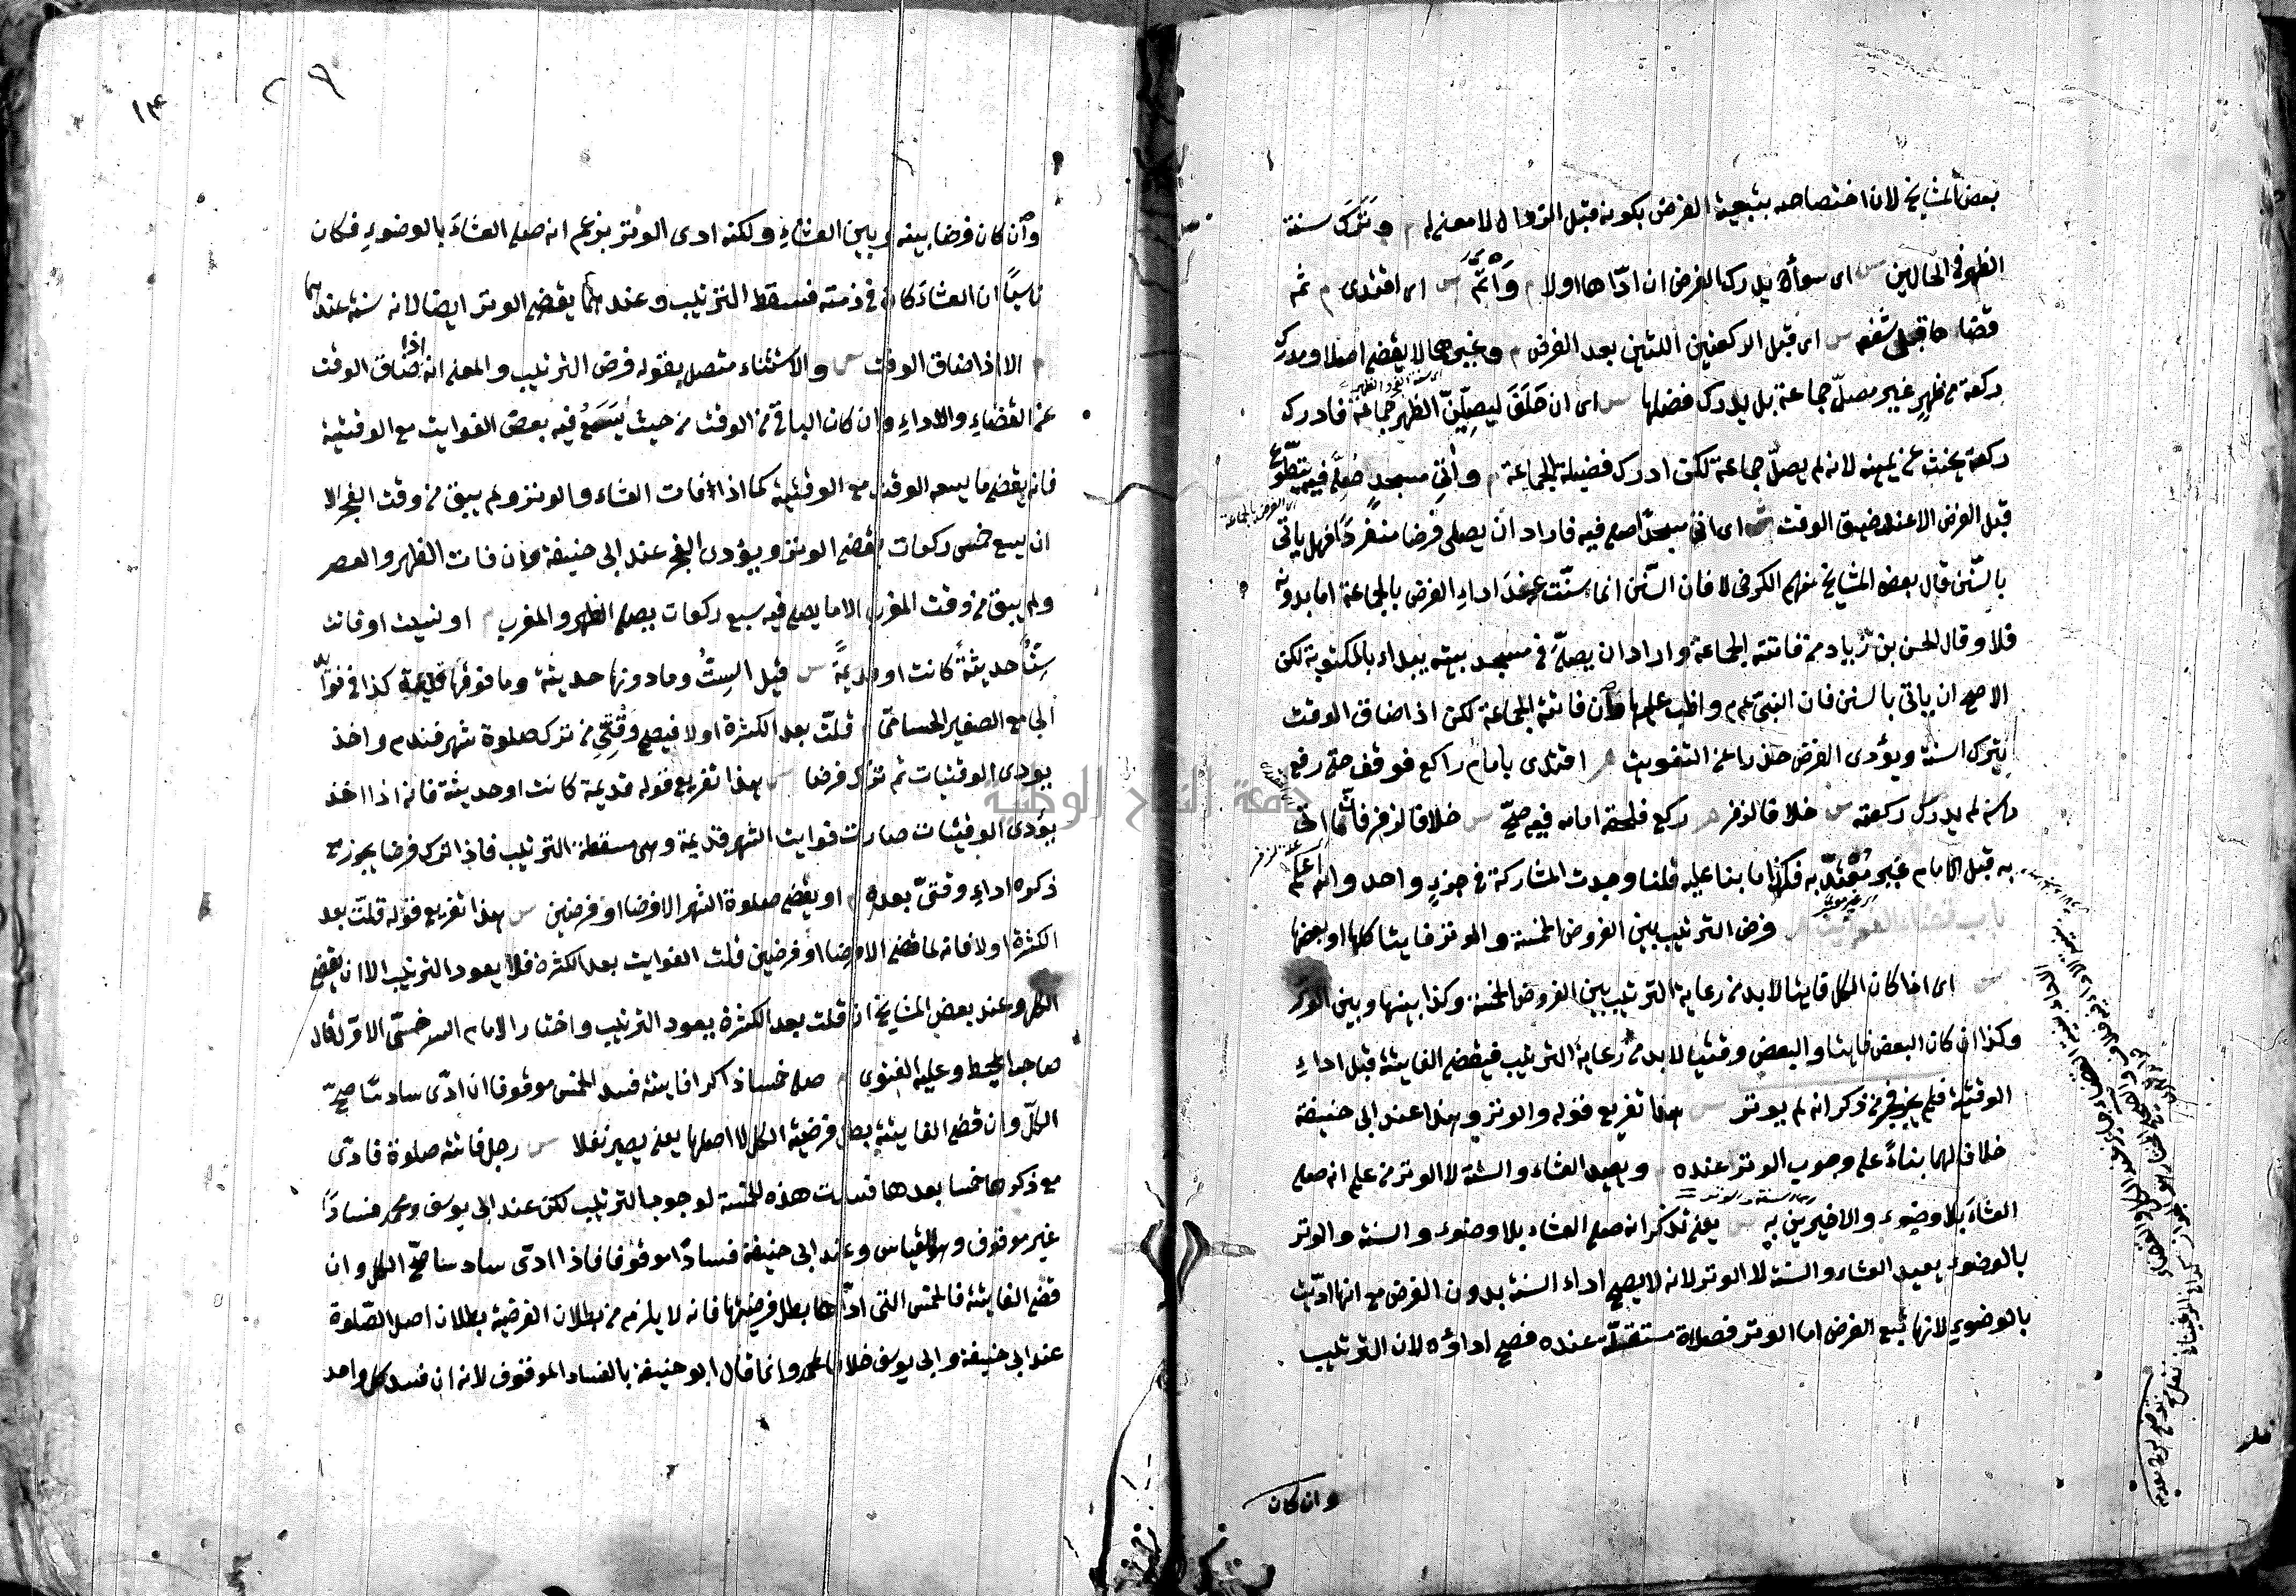 بعض المشايخ لان اختصاصه بتبعية الفرض بكونه قبل الزوال لا معنى له م وتَرَكَ سنة
الظهر في الحالين س اى سواء يدرك الفرض ان ادّاها اولا م وَائتمّ س اى اقتدى م ثم
قضاها قبل شفعه س اى قبل الركعتين اللتين بعد الفرض م وغيرهما لا يقضى اصلا ومدرك
ركعة من ظهرٍ غير مصلّ جماعة بل يدرك فضلها س اى ان حَلَفَ ليصلّينّ الظهر جماعة فادرك
ركعة يحنث عن يمينه لانه لم يصلّ جماعة لكن ادرك فضيلة الجماعة م وآتى مسجدٍ صُلّى فيه يتطوّع
قبل الفرض الا عند ضيق الوقت ش اى اتى مسجدًا صلى فيه فاراد ان يصلى فرضا منفردًا فهل ياتى
بالسّنن قال بعض المشايخ منهم الكرخى لا فان السّنن انما سنّت عند اداء الفرض بالجماعة اما بدونه
فلا وقال الحسن بن زياد من فاتته الجماعة واراد ان يصلّى في مسجد بيته يبداء بالمكتوبة لكن
الاصح ان ياتى بالسنن فان النبى عم واظب عليها وان فاتته الجماعة لكن اذا ضاق الوقت
يترك السنة ويؤدى الفرض حذرا عن التفويت م اقتدى بامام راكع فوقف حتى رفع
راسه لم يدرك ركعته س خلافا لزفر م ركع فلحقه امامه فيه صحّ س خلافا لزفر فان ما اتى
به قبل الامام غير مُعْتَدّ به فكذا ما بنا عليه قلنا وجدت المشاركة في جزءٍ واحد والله اعلم
باب قضاء الفوائت م فرض الترتيب بين الفروض الخمسة والوتر فايتا كلها او بعضها
س اى اذا كان الكل فايتا لابد من رعاية الترتيب بين الفروض الخمسة وكذا بينها وبين الوتر
وكذا ان كان البعض فايتا والبعض وقتيا لابد من رعاية الترتيب فيقضى الفايتة قبل اداء
الوقتية فلم يجز فجر من ذكر انه لم يوتر س هذا تفريع قوله والوتر وهذا عند ابى حنيفة
خلافا لهما بناءً على وجوب الوتر عنده م ويعيد العشاء والسنة لا الوتر من علم انه صلى
العشاء بلا وضوء والاخيرين به س يعنى تذكر انه صلى العشاء بلا وضوء والسنة والوتر
بالوضوء يعيد العشاء والسنة لا الوتر لانه لا يصح اداء السنة بدون الفرض مع انها ادّيت
بالوضوء لانها تبع الفرض اما الوتر فصلاة مستقلّة عنده فصح اداؤه لان الترتيب
وان كان
٢٩
وان كان فرضا بينه وبين العشاء ولكنه ادى الوتر بزعم انه صلى العشاء بالوضوء فكان
ناسيًا ان العشاء كان في ذمته فسقط الترتيب وعندهما يقضى الوتر ايضا لانه سنة عندهما
م الا اذا ضاق الوقت س والاستثناء متصل بقوله فرض الترتيب والمعنى انه اذا ضاق الوقت
عن القضاء والاداء وان كان الباقى من الوقت من حيث يَسَعُ فيه بعض الفوايت مع الوقتية
فانه يقضى ما يسعه الوقت مع الوقتية كما اذا فات العشاء والوتر ولم يبق من وقت الفجر الا
ان يسع خمس ركعات يقضى الوتر ويؤدى الفجر عند ابى حنيفة وان فات الظهر والعصر
ولم يبق من وقت المغرب الا ما يصلى فيه سبع ركعات يصلى الظهر والمغرب م او نسيت او فاتت
سِتٌّ حديثةً كانت او قديمةً س قيل الستُّ وما دونها حديثة وما فوقها قديمة كذا في فوائد
الجامع الصغير الحسامى م قلّت بعد الكثرة اولا فيصح وقتىّ من ترك صلوة شهر فندم واخذ
يؤدى الوقتيات ثم ترك فرضا س هذا تفريع قوله قديمة كانت او حديثة فانه اذا اخذ
يؤدى الوقتيات صارت فوايت الشهر قديمة وهى مسقطة الترتيب فاذا ترك فرضا يجوز مع
ذكره اداء وقتىّ بعده م او يقضى صلوة الشهر الا فرضا او فرضين س هذا تفريع قوله قلّت بعد
الكثرة اولا فانه لما قضى الا فرضا او فرضين قلت الفوايت بعد الكثرة فلا يعود الترتيب الا ان يقضى
الكل وعند بعض المشايخ ان قلت بعد الكثرة يعود الترتيب واختار الامام السرخسى الاوّل قال
صاحب المحيط وعليه الفتوى م صلى خمسا ذاكرا فايتة فسد الخمس موقوفا ان ادّى سادسًا صحّ
الكلّ وان قضى الفايتة بطل فرضية الكل لا اصلها يعنى يصير نفلا س رجل فاتته صلوة فادّى
مع ذكرها خمسا بعدها فسدت هذه الخمسة لوجوب الترتيب لكن عند ابى يوسف ومحمد فسادًا
غير موقوف وهو القياس وعند ابى حنيفة فسادًا موقوفا فاذا ادّى سادسا صحّ الكل وان
قضى الفايتة فالخمس التى ادّاها بطل فرضيتها فانه لا يلزم من بطلان الفرضية بطلان اصل الصّلوة
عند ابى حنيفة وابى يوسف خلافا لمحمد وانما قال ابو حنيفة بالفساد الموقوف لانه ان فسد كل واحد
جامعة النجاح الوطنية